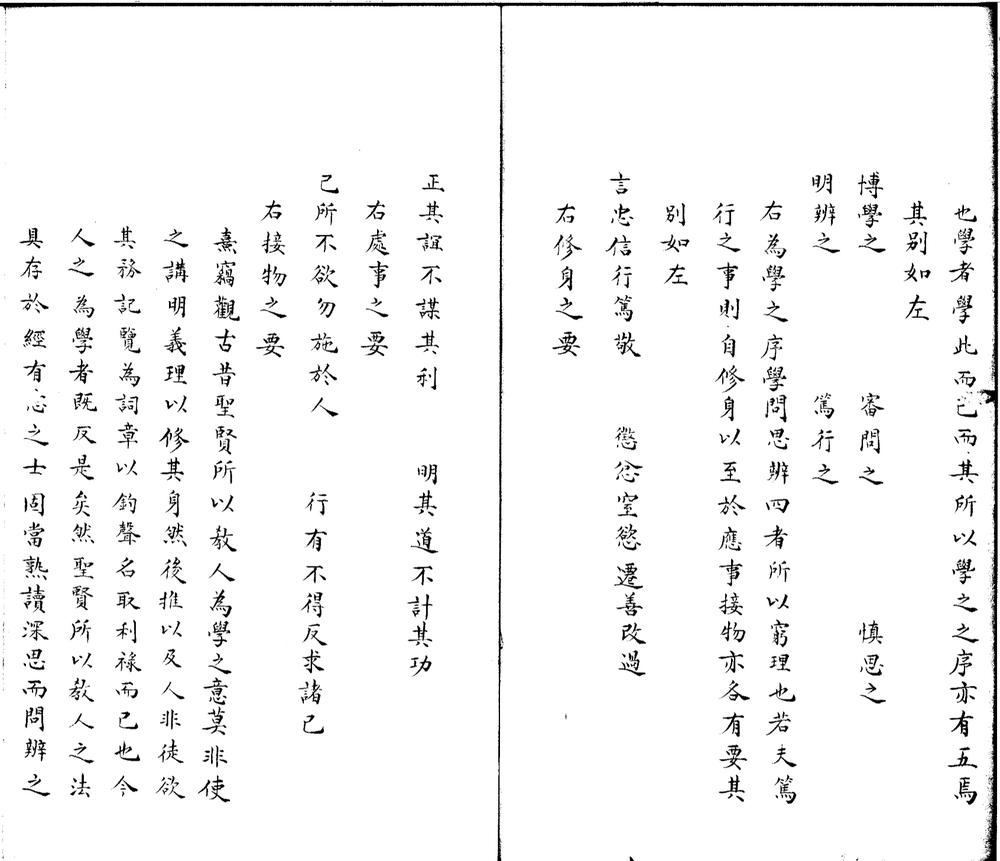 也學者學此而已而其所以學之之序亦有五焉
其别如左
博學之　審問之　慎思之
明辨之　篤行之
右為學之序學問思辨四者所以窮理也若夫篤
行之事則自修身以至於應事接物亦各有要其
别如左
言忠信行篤敬　懲忿窒慾遷善改過
右修身之要
正其誼不謀其利　明其道不計其功
右處事之要
己所不欲勿施於人　行有不得反求諸己
右接物之要
熹竊觀古昔聖賢所以教人為學之意莫非使
之講明義理以修其身然後推以及人非徒欲
其務記覽為詞章以釣聲名取利祿而已也今
人之為學者既反是矣然聖賢所以教人之法
具存於經有志之士固當熟讀深思而問辨之